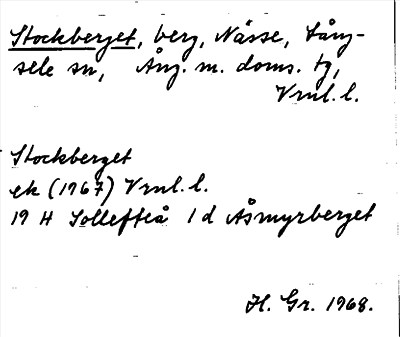 Stockberget, berg, Nässe, Lång-
sele sn, Ång. m. doms. tg,
Vrnl. l.
Stockberget
ek (1967) Vrnl. l.
19 H Sollefteå 1 d Åsmyrberget
H. Gr. 1968.